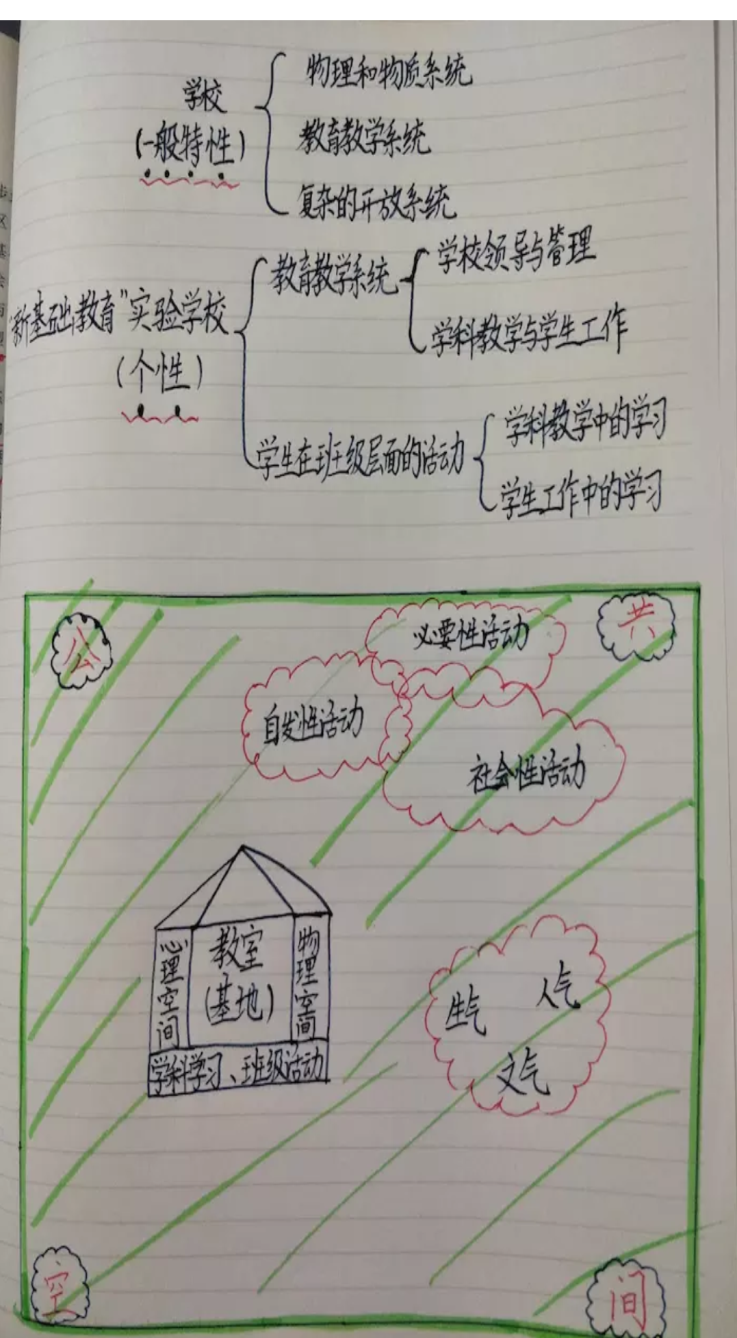 物理和物质系统
学校
(一般特性)
教育教学系统
复杂的开放系统
"新基础教育"实验学校
(个性)
教育教学系统
学校领导与管理
学科教学与学生工作
学生在班级层面的活动
学科教学中的学习
学生工作中的学习
公
共
必要性活动
自发性活动
社会性活动
心理空间
教室
(基地)
物理空间
学科学习、班级活动
生气
人气
文气
空
间